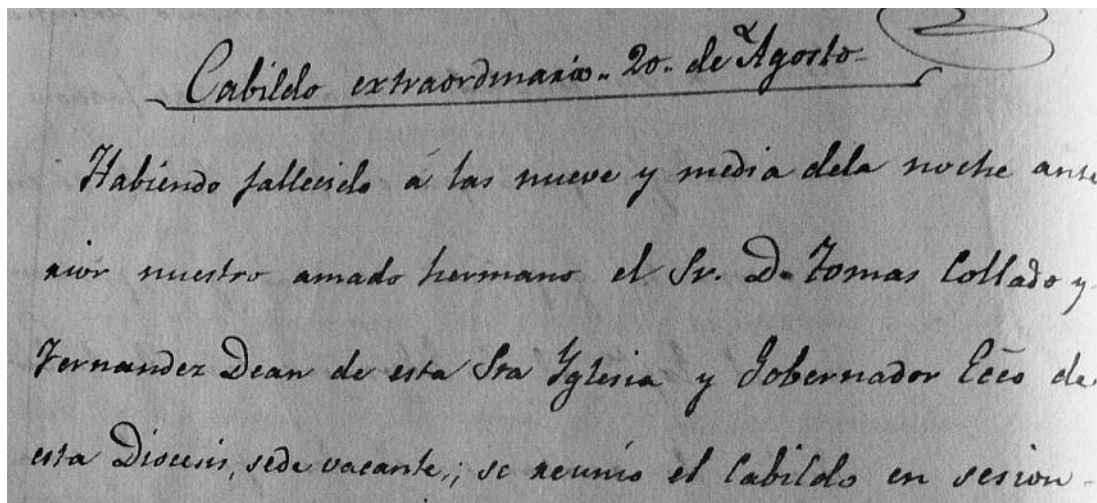 Cabildo extraordinario.. 20.. de Agosto-
Habiendo fallecido á las nueve y media dela noche ante
rior nuestro amado hermano el Sr. D. Tomas Collado y
Fernandez Dean de esta Sta Yglesia y Gobernador Ecco de
esta Diocesis, sede vacante,; se reunio el Cabildo en sesion-